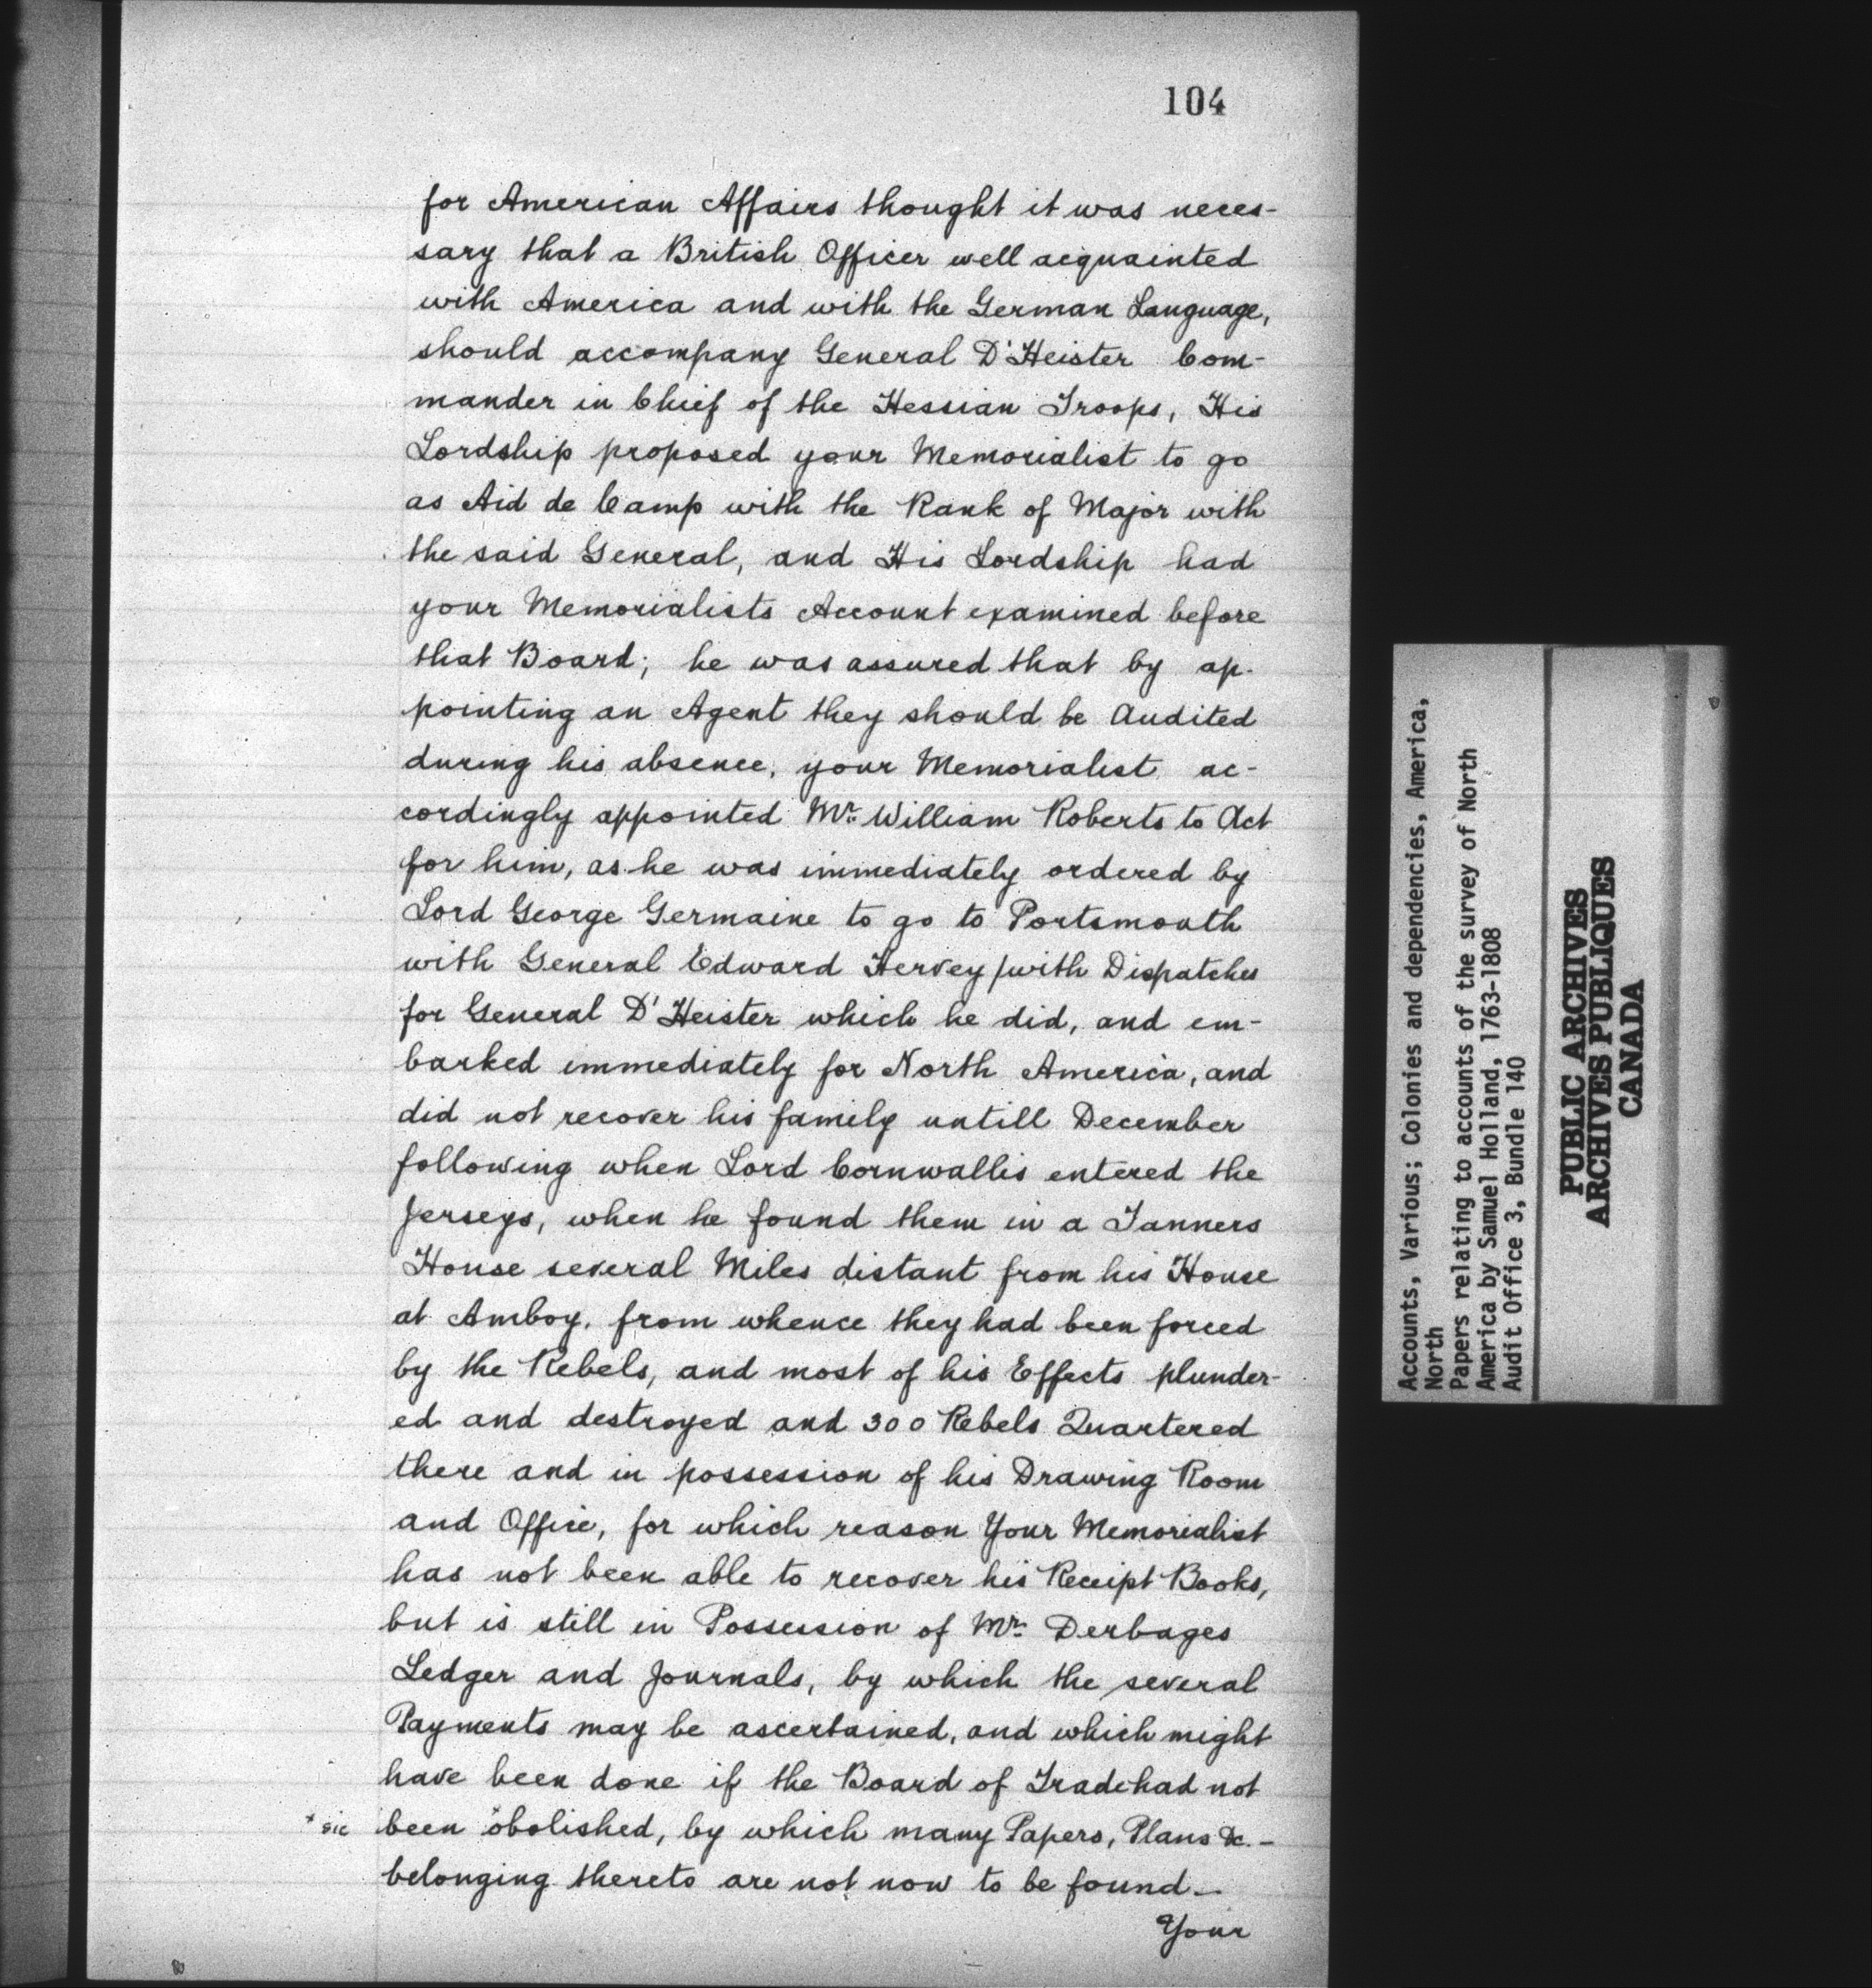 104
for American Affairs thought it was neces-
sary that a British Officer well acquainted
with America and with the German Language,
should accompany General D'Heister Com-
mander in Chief of the Hessian Troops, His
Lordship proposed your Memorialist to go
as Aid de Camp with the Rank of Major with
the said General, and His Lordship had
your Memorialists Account examined before
that Board; he was assured that by ap-
pointing an Agent they should be Audited
during his absence, your Memorialist ac-
cordingly appointed Mr. William Roberts to Act
for him, as he was immediately ordered by
Lord George Germaine to go to Portsmouth
with General Edward Hervey/with Dispatches
for General D'Heister which he did, and em-
barked immediately for North America, and
did not recover his family untill December
following when Lord Cornwallis entered the
Jerseys, when he found them in a Tanners
House several Miles distant from his House
at Amboy, from whence they had been forced
by the Rebels, and most of his Effects plunder-
ed and destroyed and 300 Rebels Quartered
there and in possession of his Drawing Room
and Office, for which reason Your Memorialist
has not been able to recover his Receipt Books,
but is still in Possession of Mr. Derbages
Ledger and Journals, by which the several
Payments may be ascertained, and which might
have been done if the Board of Trade had not
* sic been *obolished, by which many Papers, Plans &c. -
belonging thereto are not now to be found.-
Your
Accounts, Various; Colonies and dependencies, America,
North
Papers relating to accounts of the survey of North
America by Samuel Holland, 1763-1808
Audit Office 3, Bundle 140
PUBLIC ARCHIVES
ARCHIVES PUBLIQUES
CANADA